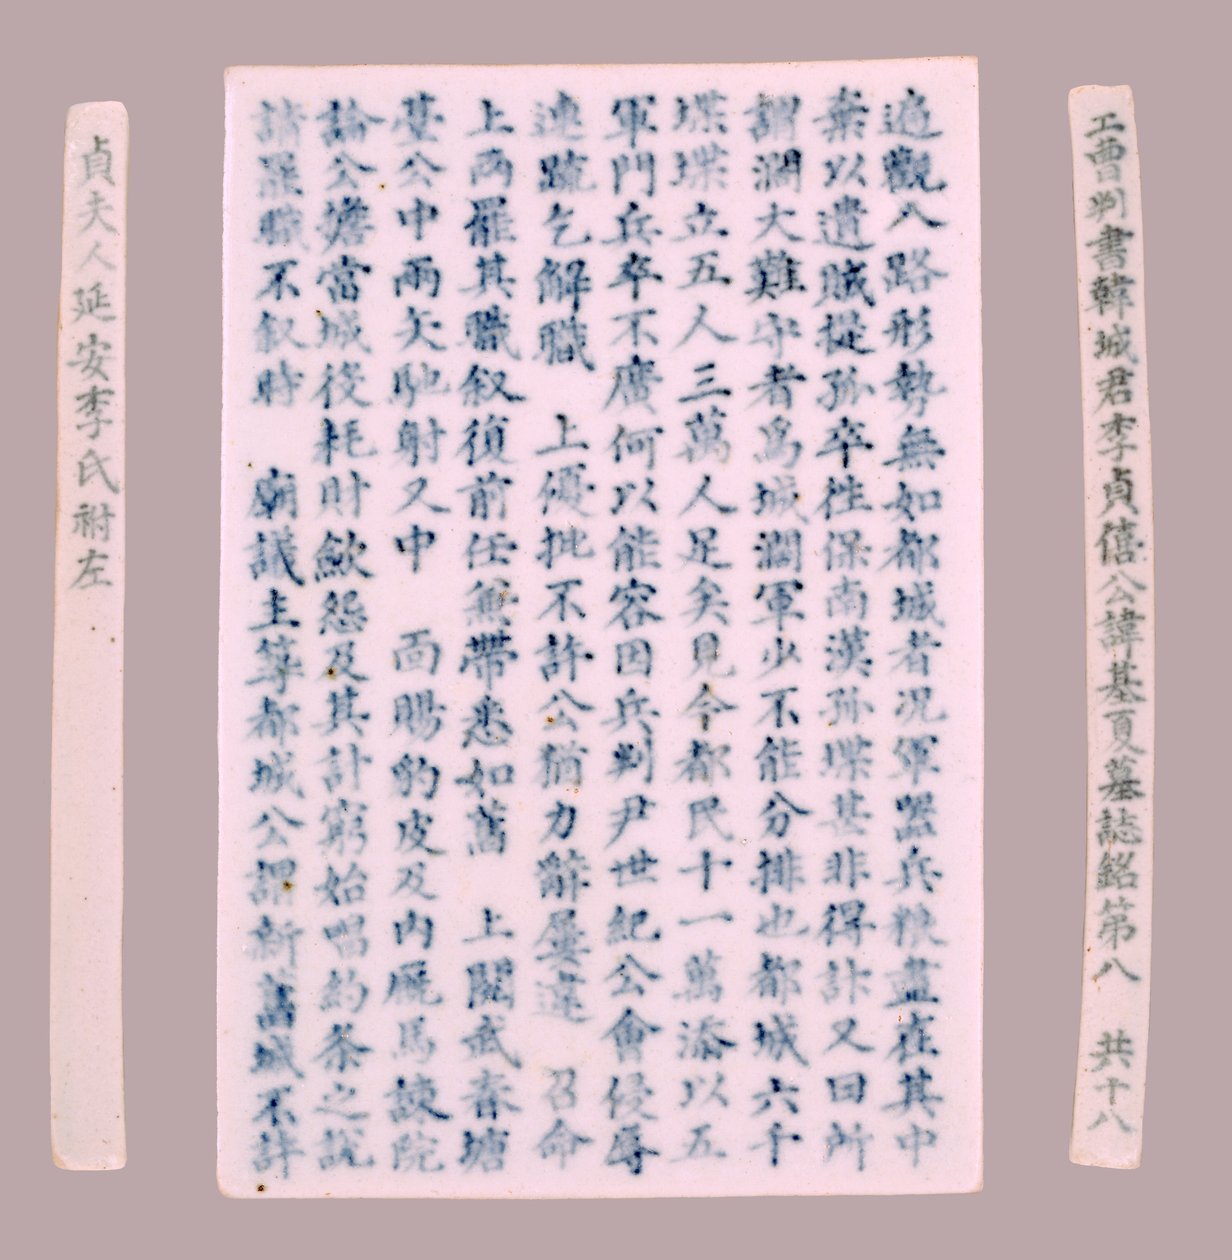 工曹判書韓城君李貞僖公諱基夏墓誌銘第八 共十八
遍觀八路形勢無如都城者況軍器兵粮盡在其中
棄以遺賊從孤卒徃保南漢孤堞甚非得計又曰所
謂濶大難守者爲城濶軍少不能分排也都城六千
堞堞立五人三萬人足矣見今都民十一萬添以五
軍門兵卒不廣何以能容因兵判尹世紀公會侵辱
連䟽乞解職 上優批不許公猶力辭屢違 召命
上両罷其職叙復前任無帶悉如舊 上閱武春塘
臺公中兩矢馳射又中 面賜豹皮及內廐馬諫院
論公擔當城役耗財歛怨及其計窮始唱約条之說
請罷職不叙時 廟議主等都城公謂新舊城不許
貞夫人延安李氏祔左